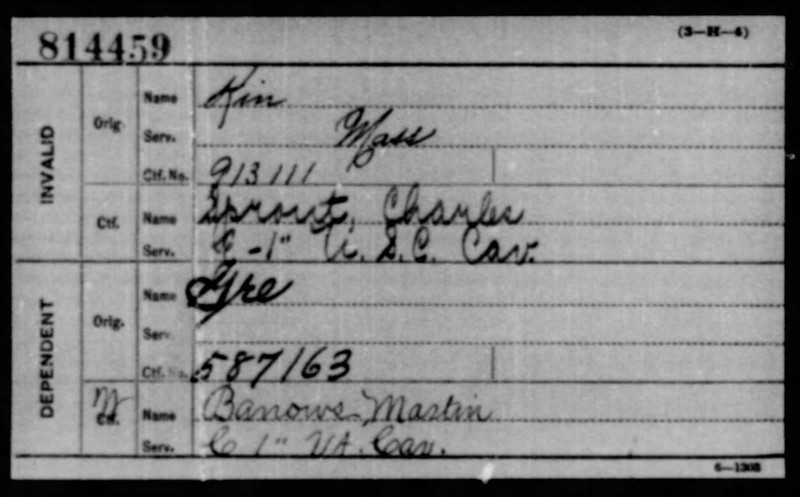 814459
(3—H—4)
INVALID
Orig.
Name Kin
Serv. Mass
Ctf. No. 913111
Ctf.
Name Sprout, Charles
Serv. -1" U. S. C. Cav.
DEPENDENT
Orig.
Name Gre
Serv.
Ctf. No. 587163
W
Ctf.
Name Barrows Martin
Serv. C 1" Vt. Cav.
6—1303